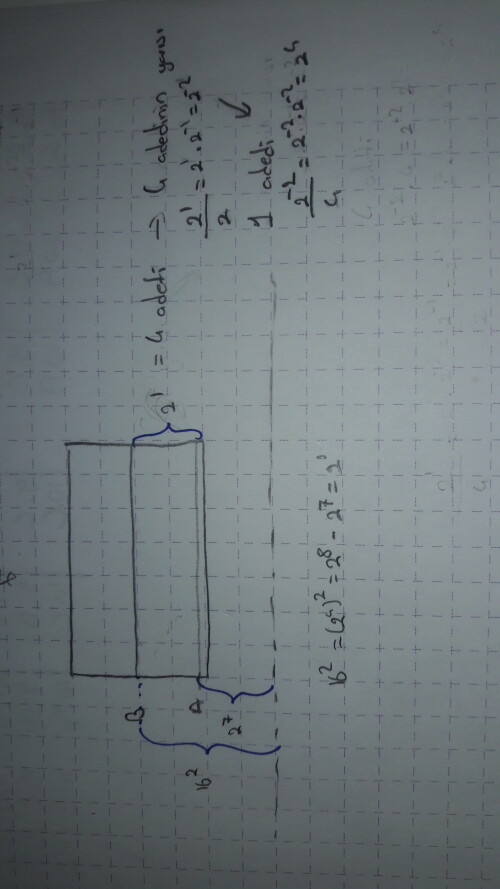 B ...
A
16²
2⁷
2¹ = 4 adedi → 4 adedinin yarısı
2¹/2 = 2¹ · 2⁻¹ = 2⁻²
1 adedi
2⁻²/4 = 2⁻² · 2⁻² = 2⁴
16² = (2⁴)² = 2⁸ - 2⁷ = 2¹